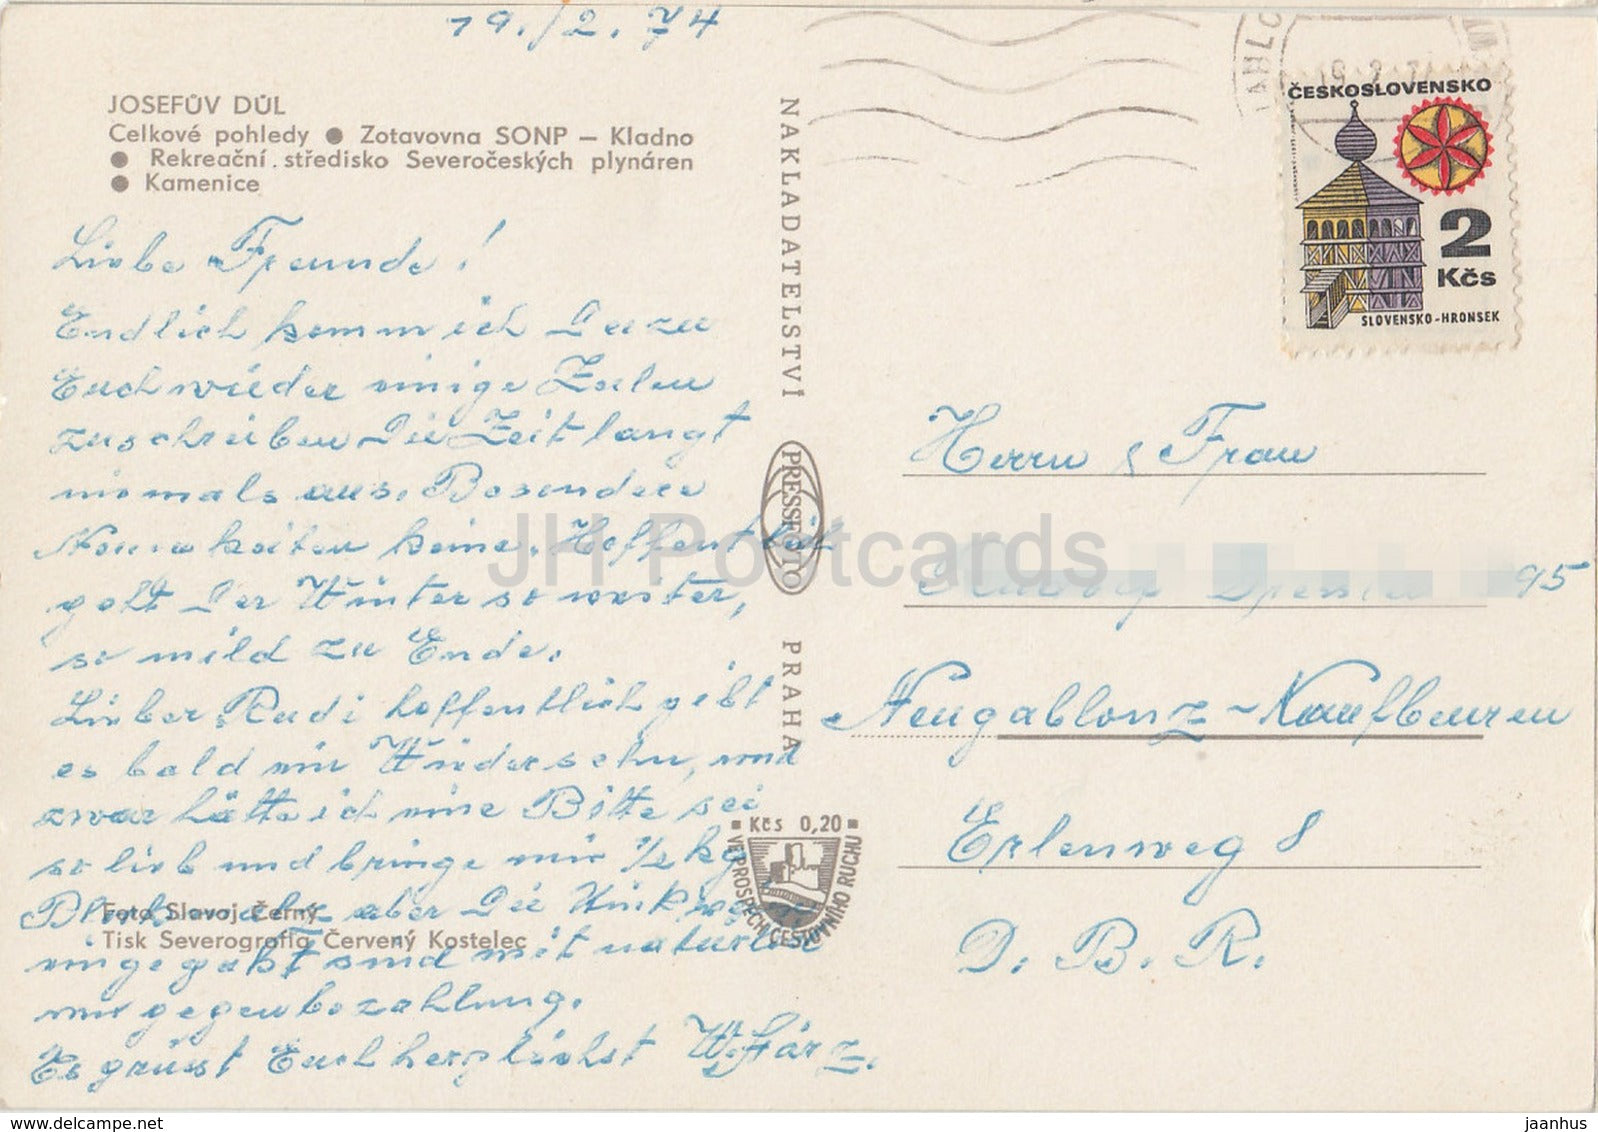 19./2.74
JOSEFŮV DŮL
Celkové pohledy ● Zotavovna SONP – Kladno
● Rekreační středisko Severočeských plynáren
● Kamenice
Liebe Freunde!
Endlich komm ich Dazu
Euch wieder einige Zeilen
zu schreiben Die Zeit langt
niemals aus. Besondere
keine. Hoffentlich
geht Der Winter so weiter,
so mild zu Ende.
Lieber Rudi hoffentlich gibt
es bald ein Wiedersehn, und
zwar hätte ich eine Bitte sei
so lieb und bringe mir 1/2 kg
aber Die
eingepakt sind mit natürlich
nur gegenbezahlung.
Es grüsst Euch herzlichst
Foto Slavoj Černý
Tisk Severografia Červený Kostelec
NAKLADATELSTVÍ
PRESSFOTO
PRAHA
Kčs 0,20
VE PROSPĚCH CESTOVNÍHO RUCHU
ČESKOSLOVENSKO
2
Kčs
SLOVENSKO-HRONSEK
Herrn & Frau
95
Neugablonz - Kaufbeuren
Erlenweg 8
D. B. R.
JH Postcards
www.delcampe.net
jaanhus